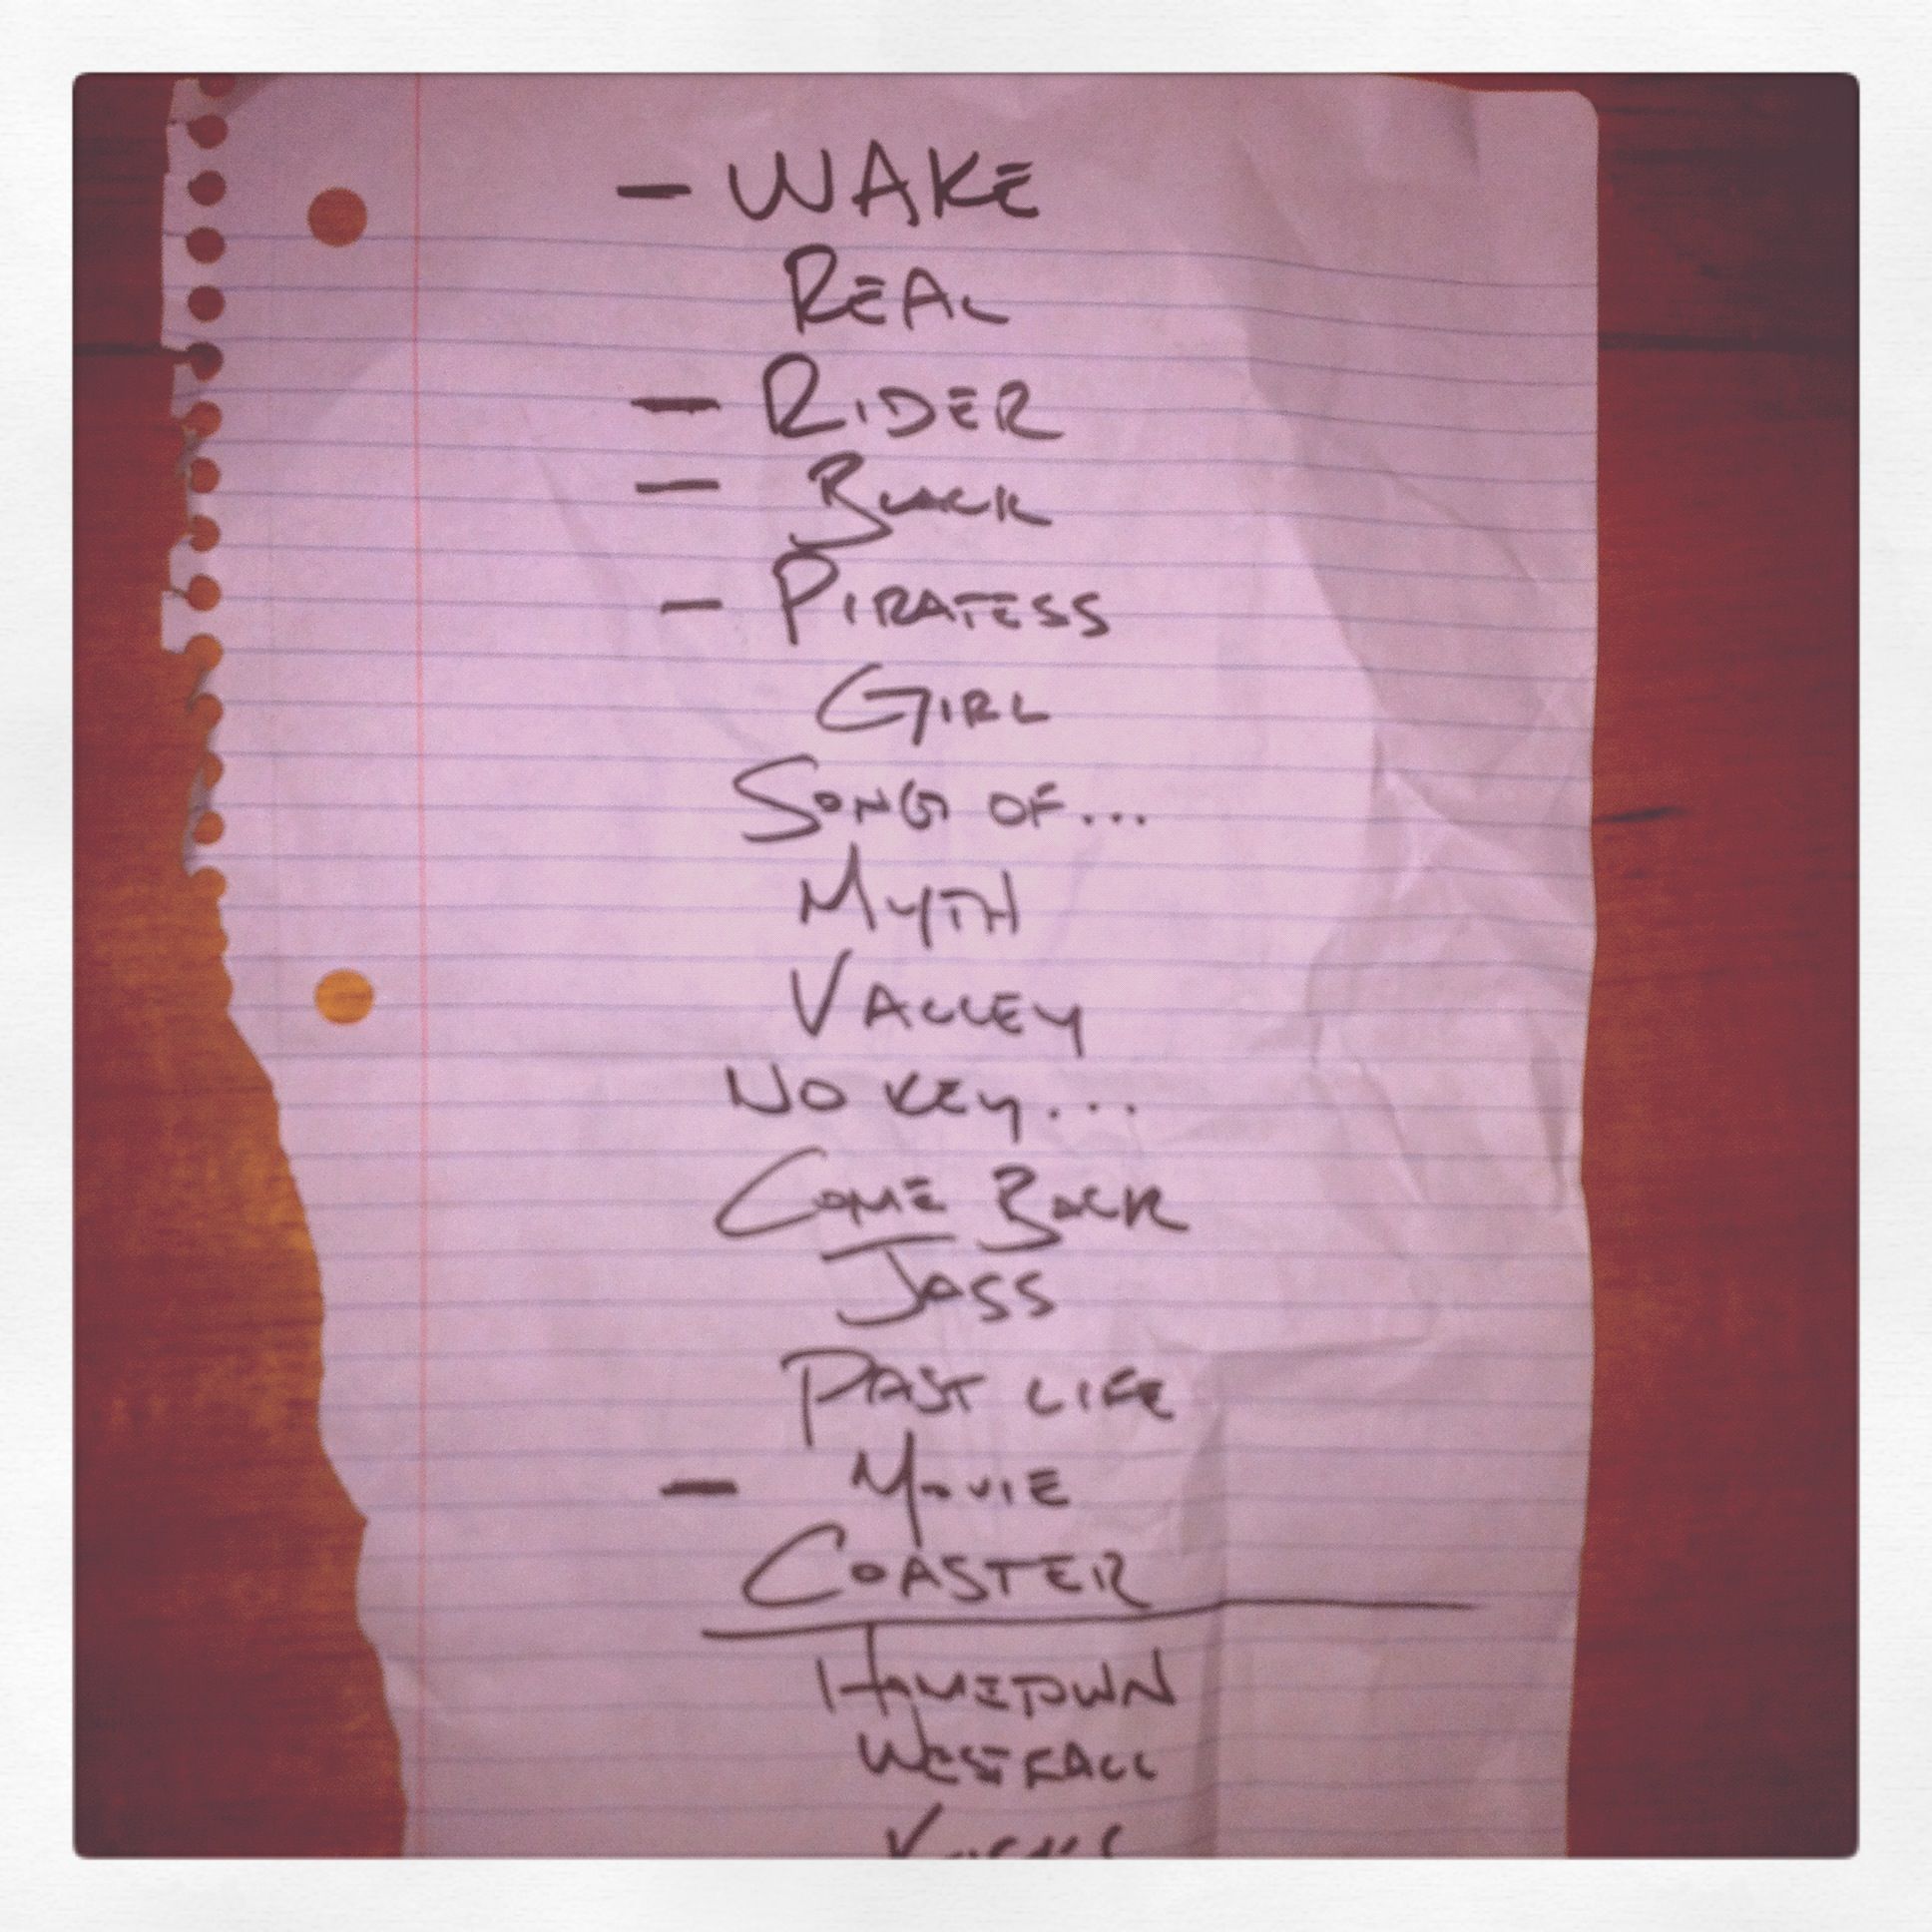 - WAKE
REAL
- RIDER
- BLACK
- PIRATESS
GIRL
SONG OF...
MYTH
VALLEY
NO KEY...
COME BACK
JOSS
PAST LIFE
- MOVIE
COASTER
HOMETOWN
WESTFALL